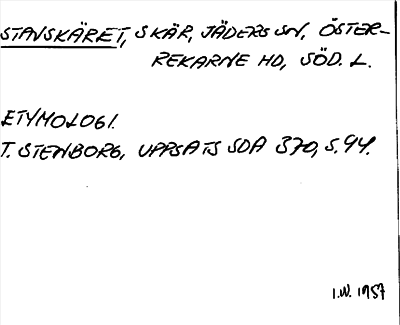 STAVSKÄRET, SKÄR, JÄDERS SN, ÖSTER-
REKARNE HD, SÖD. L.
ETYMOLOGI.
T. STENBORG, UPPSATS SDA 370, S. 94.
I.W. 1957